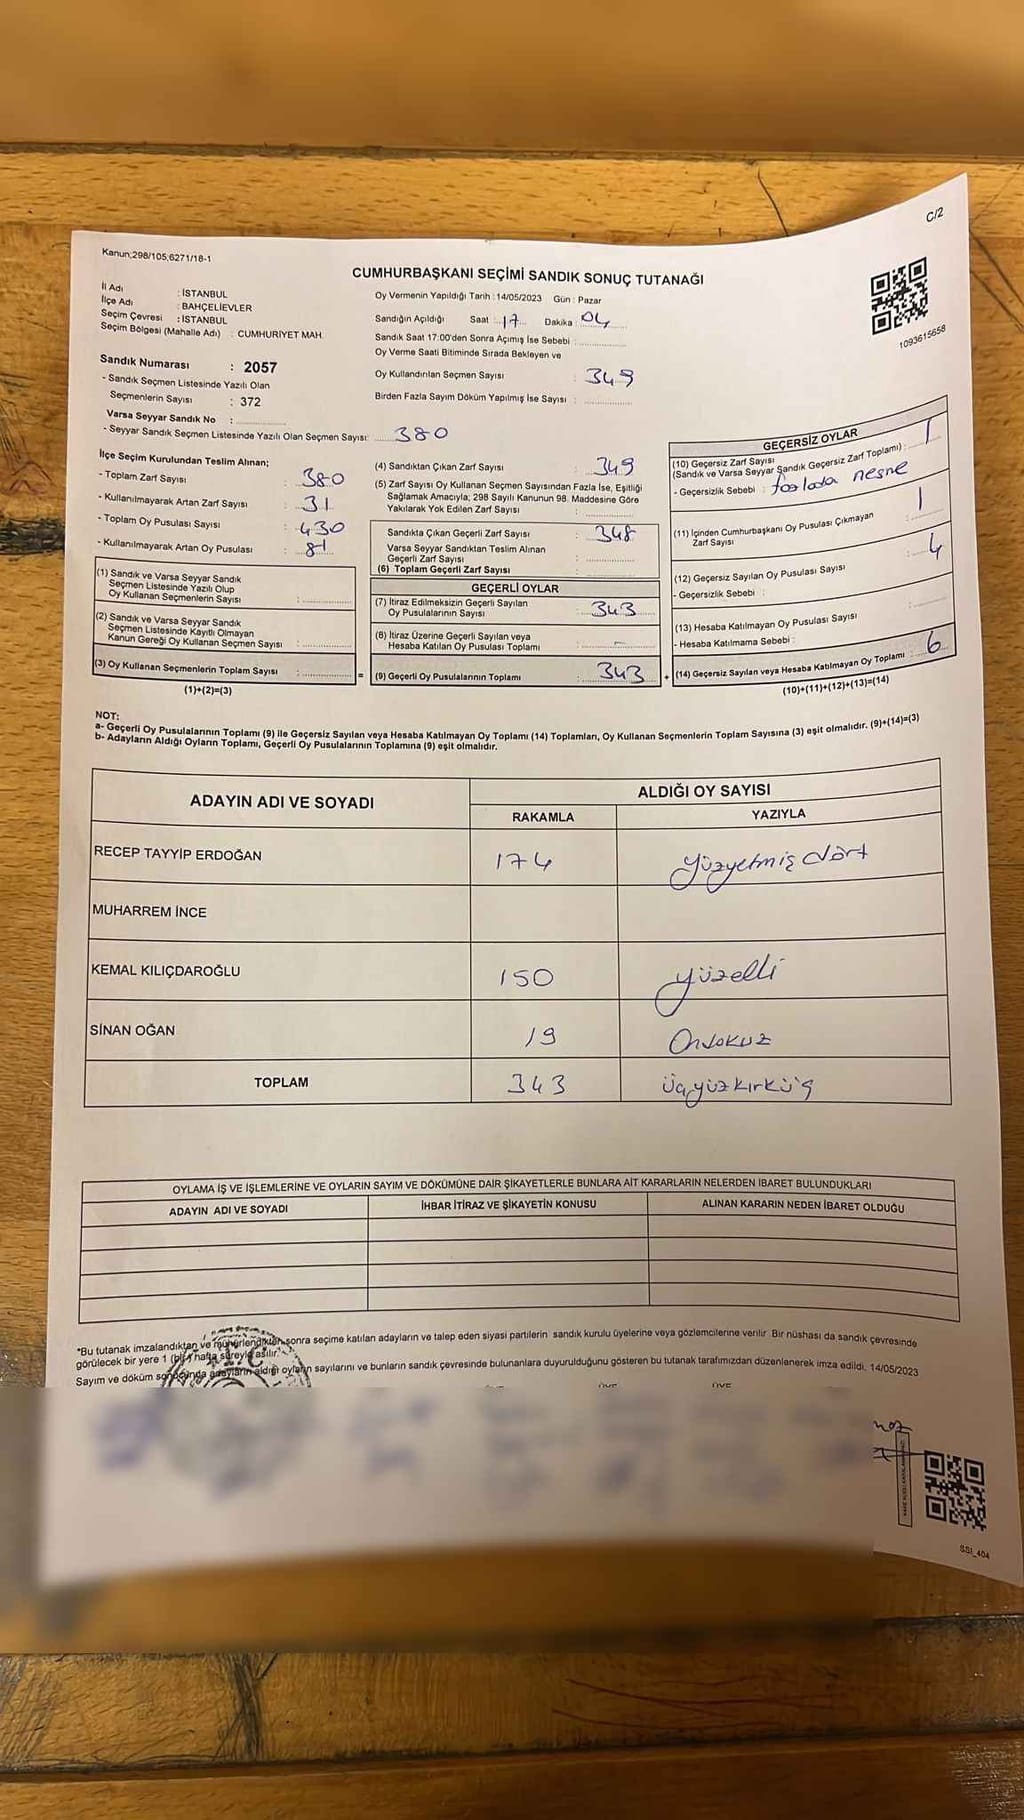 C/2
Kanun;298/105;6271/18-1
CUMHURBAŞKANI SEÇİMİ SANDIK SONUÇ TUTANAĞI
1093615658
İl Adı : İSTANBUL
İlçe Adı : BAHÇELİEVLER
Seçim Çevresi : İSTANBUL
Seçim Bölgesi (Mahalle Adı) : CUMHURİYET MAH.
Sandık Numarası : 2057
- Sandık Seçmen Listesinde Yazılı Olan
Seçmenlerin Sayısı : 372
Varsa Seyyar Sandık No :
- Seyyar Sandık Seçmen Listesinde Yazılı Olan Seçmen Sayısı: 380
Oy Vermenin Yapıldığı Tarih : 14/05/2023 Gün : Pazar
Sandığın Açıldığı Saat : 17 Dakika : 04
Sandık Saat 17:00'den Sonra Açımış İse Sebebi :
Oy Verme Saati Bitiminde Sırada Bekleyen ve
Oy Kullandırılan Seçmen Sayısı : 349
Birden Fazla Sayım Döküm Yapılmış İse Sayısı :
İlçe Seçim Kurulundan Teslim Alınan;
- Toplam Zarf Sayısı : 380
- Kullanılmayarak Artan Zarf Sayısı : 31
- Toplam Oy Pusulası Sayısı : 430
- Kullanılmayarak Artan Oy Pusulası : 81
(1) Sandık ve Varsa Seyyar Sandık
Seçmen Listesinde Yazılı Olup
Oy Kullanan Seçmenlerin Sayısı :
(2) Sandık ve Varsa Seyyar Sandık
Seçmen Listesinde Kayıtlı Olmayan
Kanun Gereği Oy Kullanan Seçmen Sayısı :
(3) Oy Kullanan Seçmenlerin Toplam Sayısı : =
(1)+(2)=(3)
(4) Sandıktan Çıkan Zarf Sayısı : 349
(5) Zarf Sayısı Oy Kullanan Seçmen Sayısından Fazla İse, Eşitliği
Sağlamak Amacıyla; 298 Sayılı Kanunun 98. Maddesine Göre
Yakılarak Yok Edilen Zarf Sayısı :
Sandıkta Çıkan Geçerli Zarf Sayısı : 348
Varsa Seyyar Sandıktan Teslim Alınan
Geçerli Zarf Sayısı :
(6) Toplam Geçerli Zarf Sayısı :
GEÇERLİ OYLAR
(7) İtiraz Edilmeksizin Geçerli Sayılan
Oy Pusulalarının Sayısı : 343
(8) İtiraz Üzerine Geçerli Sayılan veya
Hesaba Katılan Oy Pusulası Toplamı : -
(9) Geçerli Oy Pusulalarının Toplamı : 343 +
GEÇERSİZ OYLAR
(10) Geçersiz Zarf Sayısı
(Sandık ve Varsa Seyyar Sandık Geçersiz Zarf Toplamı) : 1
- Geçersizlik Sebebi : fazlada nesne
(11) İçinden Cumhurbaşkanı Oy Pusulası Çıkmayan
Zarf Sayısı : 1
(12) Geçersiz Sayılan Oy Pusulası Sayısı : 4
- Geçersizlik Sebebi :
(13) Hesaba Katılmayan Oy Pusulası Sayısı :
- Hesaba Katılmama Sebebi :
(14) Geçersiz Sayılan veya Hesaba Katılmayan Oy Toplamı : 6
(10)+(11)+(12)+(13)=(14)
NOT:
a- Geçerli Oy Pusulalarının Toplamı (9) ile Geçersiz Sayılan veya Hesaba Katılmayan Oy Toplamı (14) Toplamları, Oy Kullanan Seçmenlerin Toplam Sayısına (3) eşit olmalıdır. (9)+(14)=(3)
b- Adayların Aldığı Oyların Toplamı, Geçerli Oy Pusulalarının Toplamına (9) eşit olmalıdır.
ADAYIN ADI VE SOYADI ALDIĞI OY SAYISI
RAKAMLA YAZIYLA
RECEP TAYYİP ERDOĞAN 174 yüzyetmiş dört
MUHARREM İNCE
KEMAL KILIÇDAROĞLU 150 yüzelli
SİNAN OĞAN 19 Ondokuz
TOPLAM 343 üçyüzkırküç
OYLAMA İŞ VE İŞLEMLERİNE VE OYLARIN SAYIM VE DÖKÜMÜNE DAİR ŞİKAYETLERLE BUNLARA AİT KARARLARIN NELERDEN İBARET BULUNDUKLARI
ADAYIN ADI VE SOYADI İHBAR İTİRAZ VE ŞİKAYETİN KONUSU ALINAN KARARIN NEDEN İBARET OLDUĞU
*Bu tutanak imzalandıktan ve mühürlendikten sonra seçime katılan adayların ve talep eden siyasi partilerin sandık kurulu üyelerine veya gözlemcilerine verilir. Bir nüshası da sandık çevresinde
görülecek bir yere 1 (bir) hafta süreyle asılır.
Sayım ve döküm sonucunda adayların aldığı oyların sayılarını ve bunların sandık çevresinde bulunanlara duyurulduğunu gösteren bu tutanak tarafımızdan düzenlenerek imza edildi. 14/05/2023
T.C.
ÜYE ÜYE
SSI_404